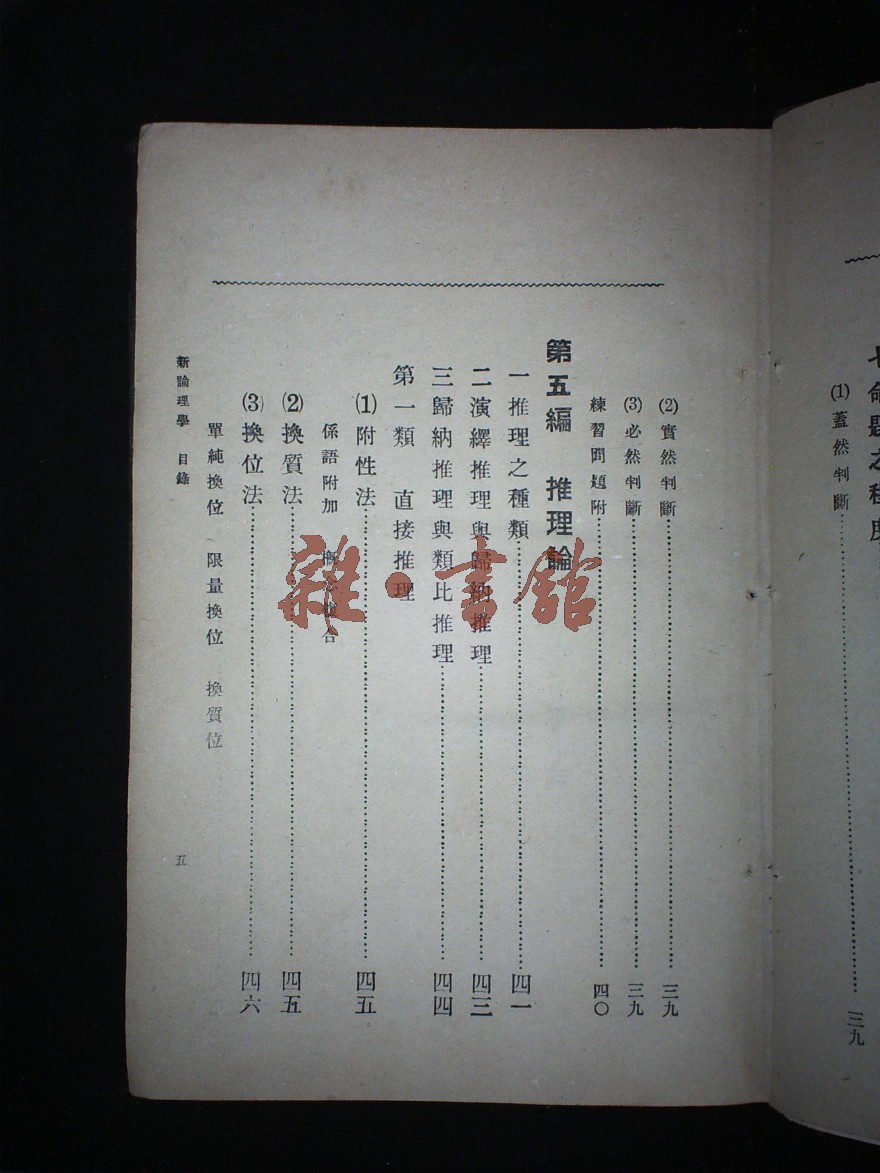 命題之程度
(1)蓋然判斷……三九
(2)實然判斷……三九
(3)必然判斷……三九
練習問題附……四〇
第五編 推理論
一推理之種類……四一
二演繹推理與歸納推理……四三
三歸納推理與類比推理……四四
第一類 直接推理
(1)附性法……四五
係語附加 概 合
(2)換質法……四五
(3)換位法……四六
單純換位 限量換位 換質位
新論理學 目錄
五
雜·書館